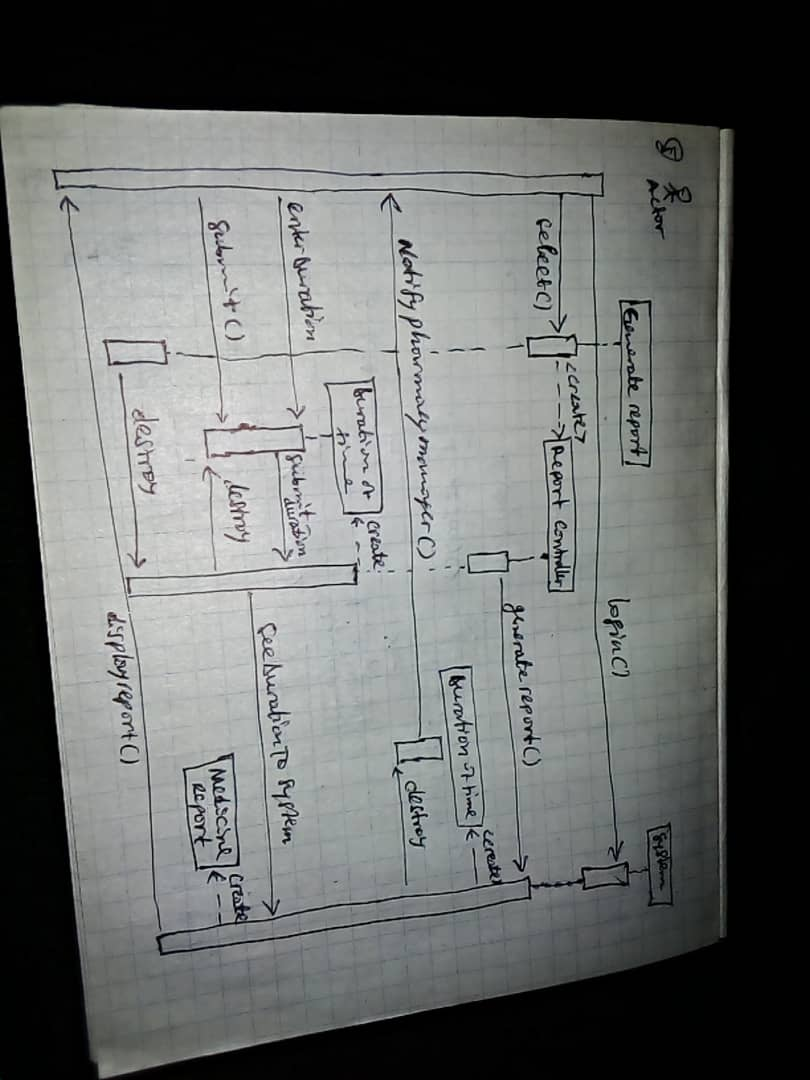 Actor
Generate report
System
login()
select()
<create>
Report controller
generate report()
<create
Duration of time
destroy
Notify pharmacy manager()
create
Duration of
time
enter Duration
submit
duration
submit()
destroy
see Duration To system
create
Medicine
report
destroy
display report()